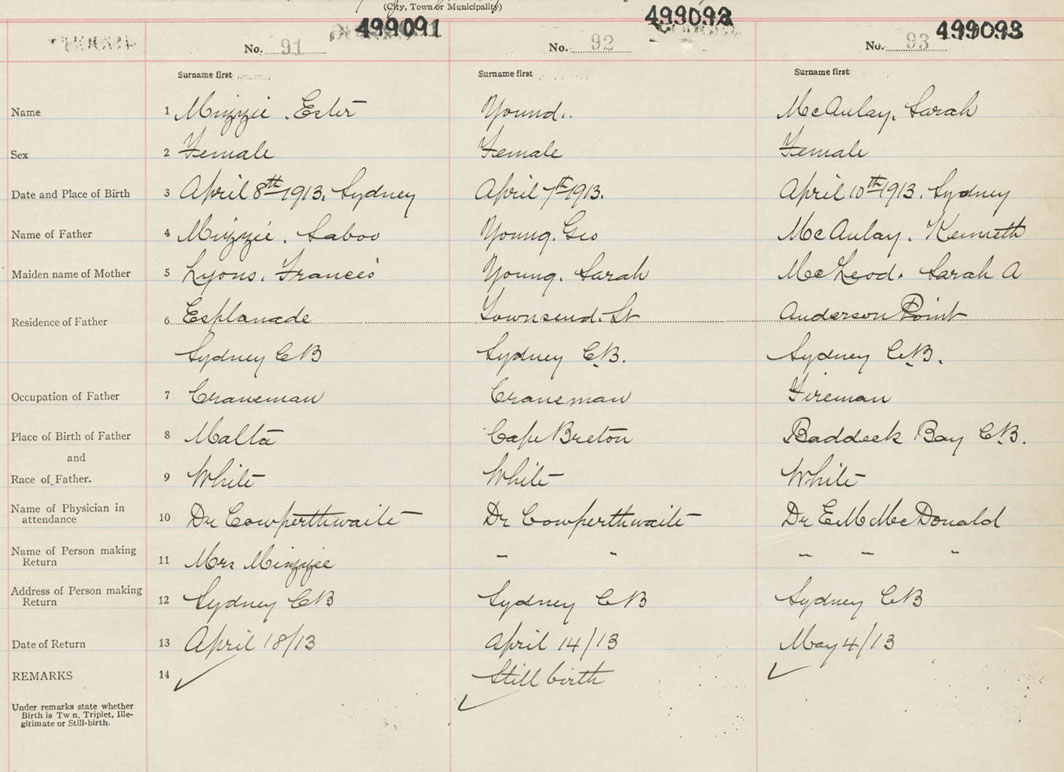 (City, Town or Municipality)
499091 499092 499093
No. 91 No. 92 No. 93
Surname first Surname first Surname first
Name 1 Mizzie. Ester Yound.. McAulay. Sarah
Sex 2 Female Female Female
Date and Place of Birth 3 April 8th 1913. Sydney April 7th 1913. April 10th 1913. Sydney
Name of Father 4 Mizzie. Saboo Young. Geo McAulay. Kenneth
Maiden name of Mother 5 Lyons. Francis Young. Sarah McLeod. Sarah A
Residence of Father 6 Esplanade Townsend. St Anderson Point
Sydney C B Sydney C.B. Sydney C.B.
Occupation of Father 7 Craneman Craneman Fireman
Place of Birth of Father 8 Malta Cape Breton Baddeck Bay C.B.
and
Race of Father. 9 White White White
Name of Physician in attendance 10 Dr Cowperthwaite Dr Cowperthwaite Dr E M McDonald
Name of Person making Return 11 Mrs Mizzie " " " " "
Address of Person making Return 12 Sydney C B Sydney C B Sydney C B
Date of Return 13 April 18/13 April 14/13 May 4/13
REMARKS 14 Still birth
Under remarks state whether
Birth is Twin, Triplet, Ille-
gitimate or Still-birth.